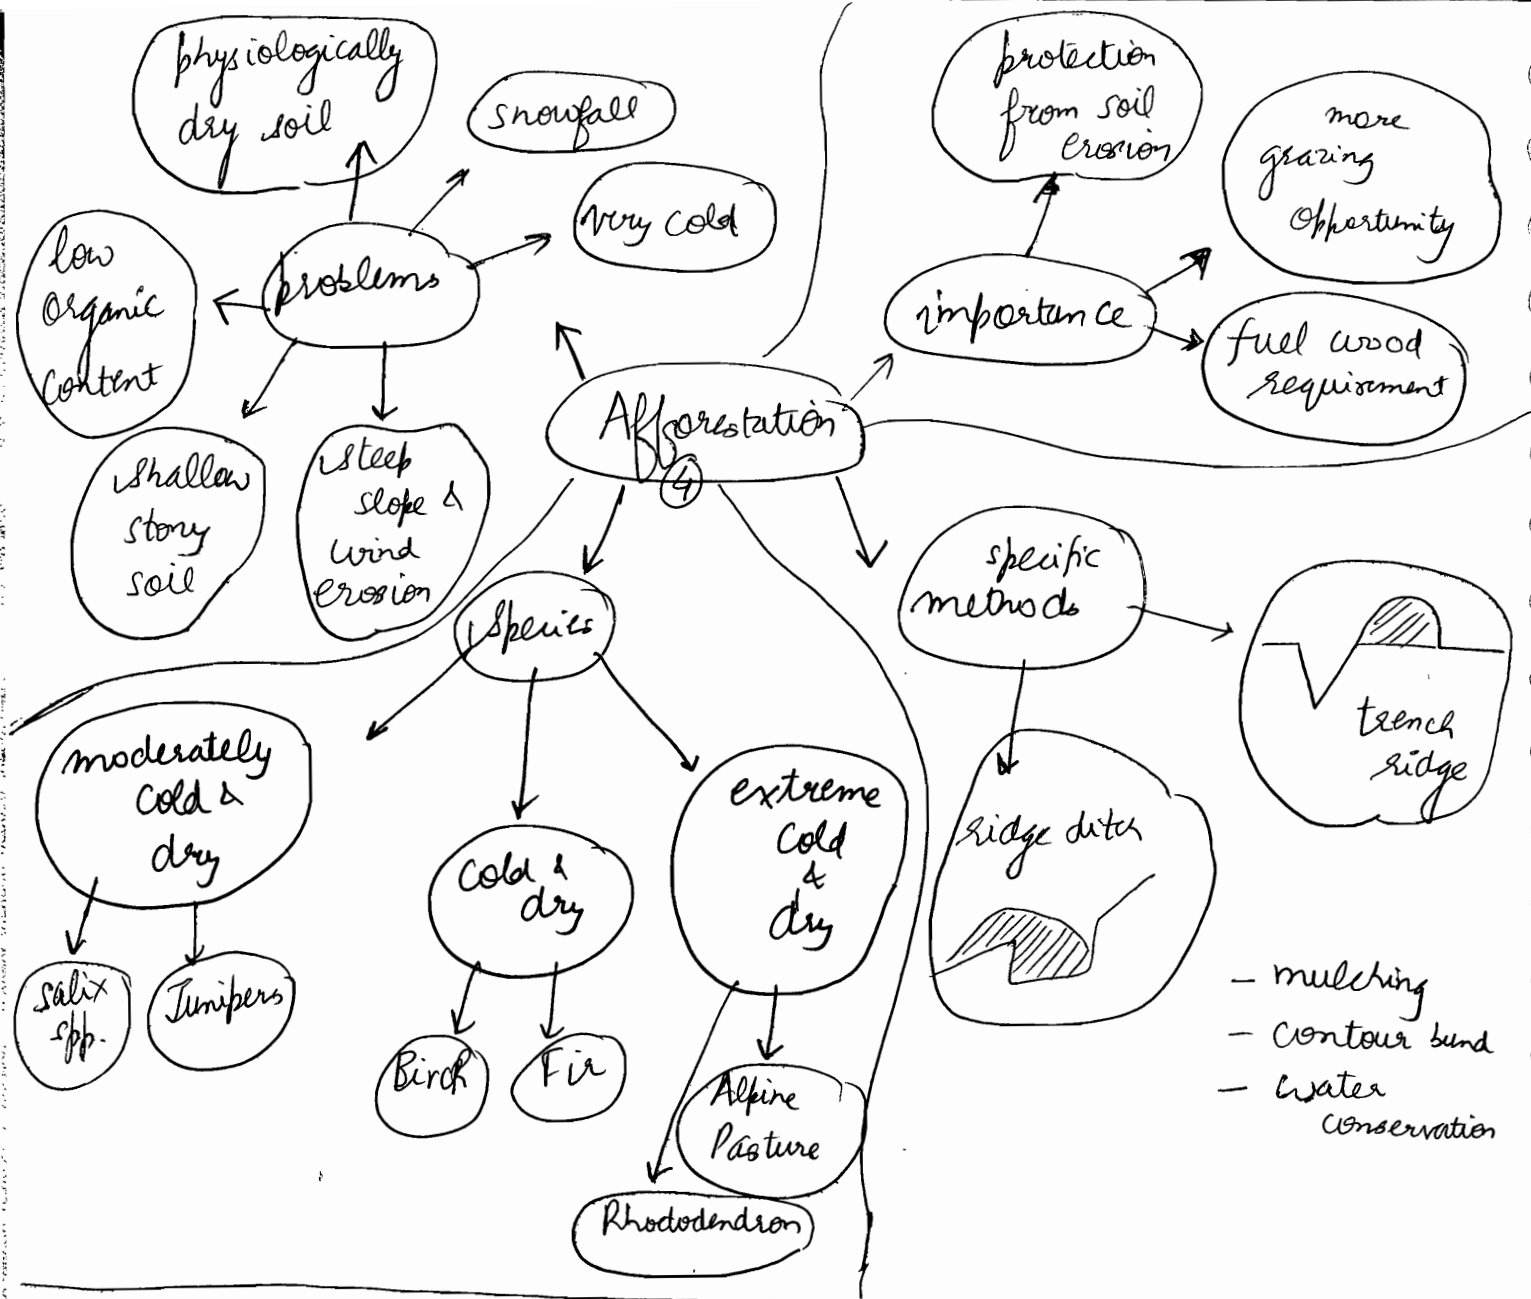 physiologically
dry soil
snowfall
very cold
problems
low
organic
content
shallow
stony
soil
steep
slope &
wind
erosion
protection
from soil
erosion
more
grazing
opportunity
importance
fuel wood
requirement
Afforestation
4
species
moderately
cold &
dry
salix
spp.
Junipers
cold &
dry
Birch
Fir
extreme
cold
&
dry
Alpine
Pasture
Rhododendron
specific
methods
trench
ridge
ridge ditch
- mulching
- contour bund
- water
conservation